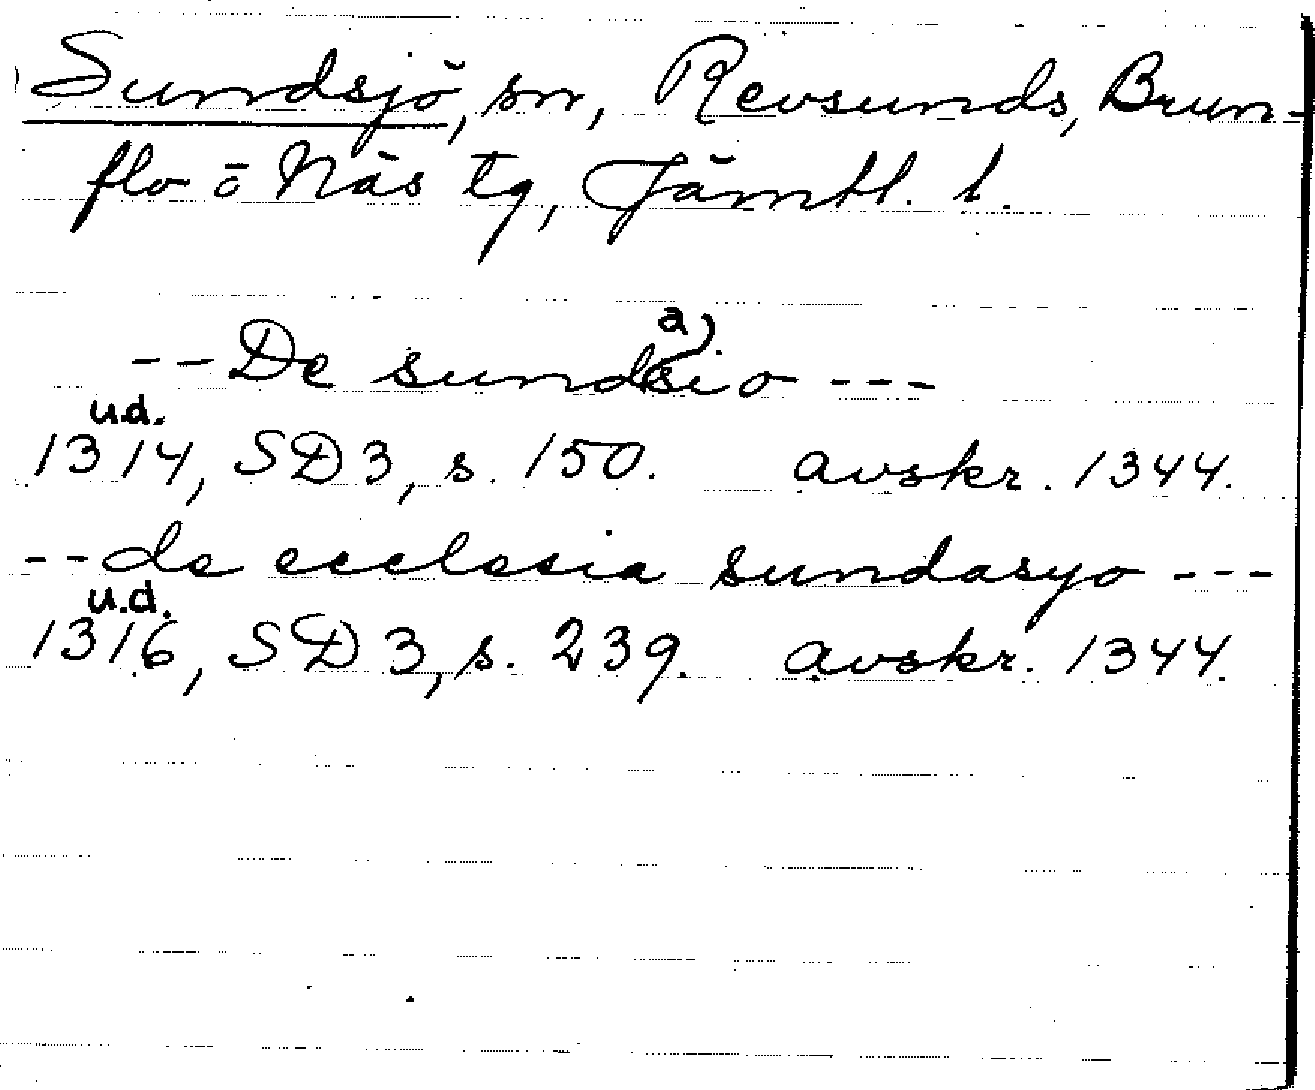 Sundsjö, sn, Revsunds, Brun-
flo o Näs tg, Jämtl. l.
--De sundasio ---
u.d.
1314, SD3, s. 150. avskr. 1344.
--de ecclesia sundasyo ---
u.d.
1316, SD3, s. 239. avskr. 1344.